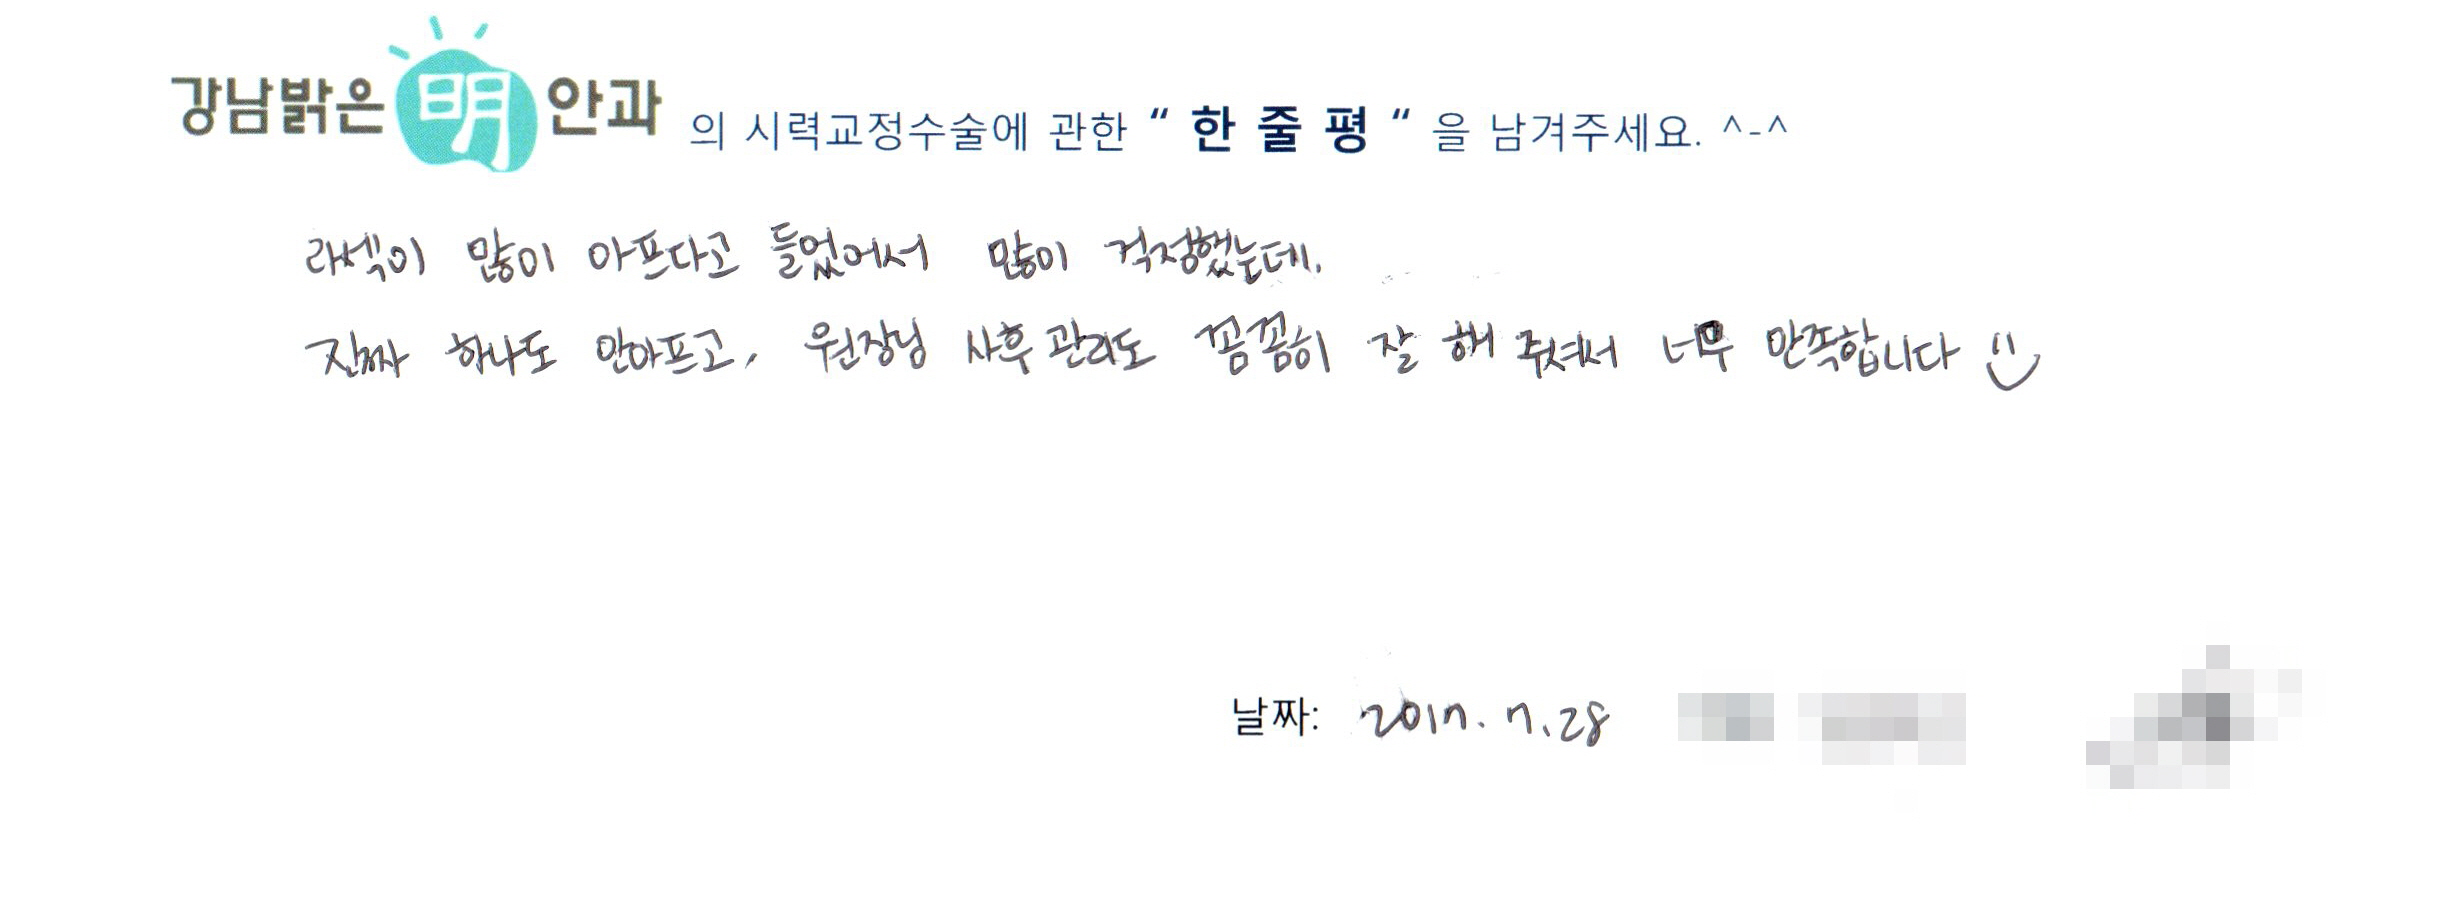 강남밝은 明 안과 의 시력교정수술에 관한 “ 한 줄 평 “ 을 남겨주세요. ^-^
라섹이 많이 아프다고 들었어서 많이 걱정했는데.
진짜 하나도 안아프고, 원장님 사후관리도 꼼꼼히 잘 해 주셔서 너무 만족합니다
날짜: 2017. 7. 28